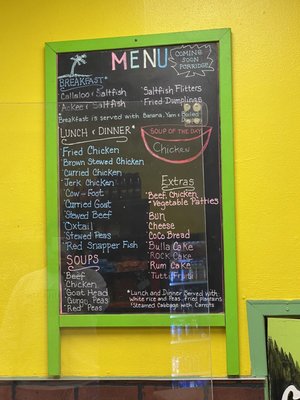 MENU
COMING
SOON
PORRIDGE
BREAKFAST*
Callaloo & Saltfish
Saltfish Fritters
Ackee & Saltfish
Fried Dumplings
Breakfast is served with Banana, Yam & Boiled
LUNCH & DINNER*
Fried Chicken
Brown Stewed Chicken
Curried Chicken
Jerk Chicken
Cow-Foot
Curried Goat
Stewed Beef
Oxtail
Stewed Peas
Red Snapper Fish
SOUPS
Beef
Chicken
Goat Head
Gungo Peas
Red Peas
SOUP OF THE DAY
Chicken
Extras
Beef, Chicken
*Vegetable Patties
Bun
Cheese
CoCo Bread
Bulla Cake
Rock Cake
Rum Cake
Tutti Fruti
*Lunch and Dinner Served with
white rice and Peas, Fried plantains
& Steamed Cabbage with Carrots